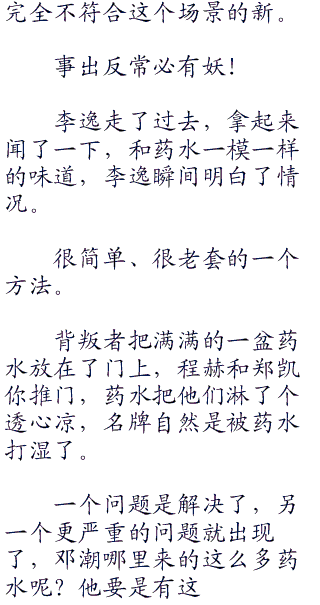 完全不符合这个场景的新。
事出反常必有妖!
李逸走了过去，拿起来
闻了一下，和药水一模一样
的味道，李逸瞬间明白了情
况。
很简单、很老套的一个
方法。
背叛者把满满的一盆药
水放在了门上，程赫和郑凯
你推门，药水把他们淋了个
透心凉，名牌自然是被药水
打湿了。
一个问题是解决了，另
一个更严重的问题就出现
了，邓潮哪里来的这么多药
水呢？他要是有这